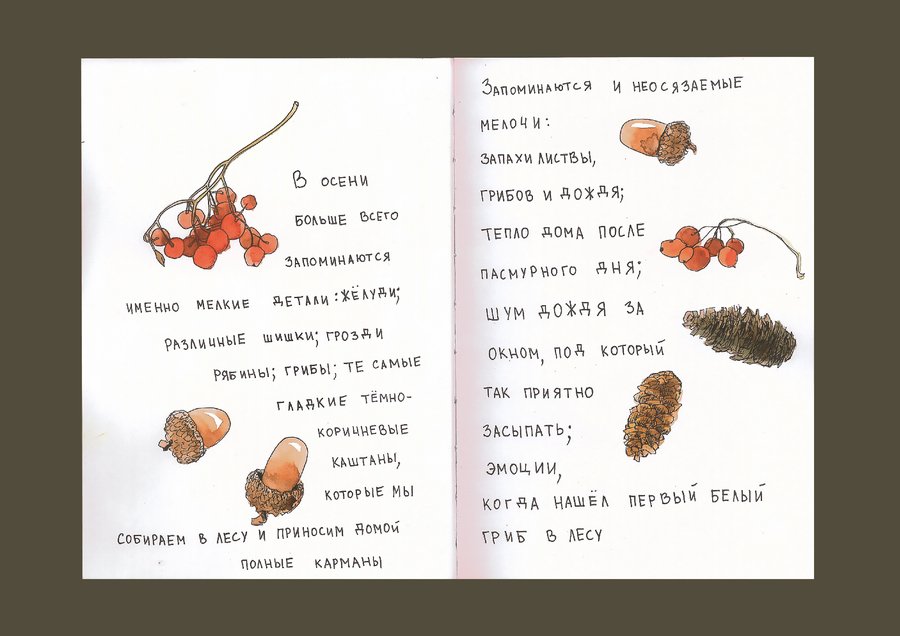 В осени
больше всего
запоминаются
именно мелкие детали: жёлуди;
различные шишки; грозди
рябины; грибы; те самые
гладкие тёмно-
коричневые
каштаны,
которые мы
собираем в лесу и приносим домой
полные карманы
Запоминаются и неосязаемые
мелочи:
запахи листвы,
грибов и дождя;
тепло дома после
пасмурного дня;
шум дождя за
окном, под который
так приятно
засыпать;
эмоции,
когда нашёл первый белый
гриб в лесу